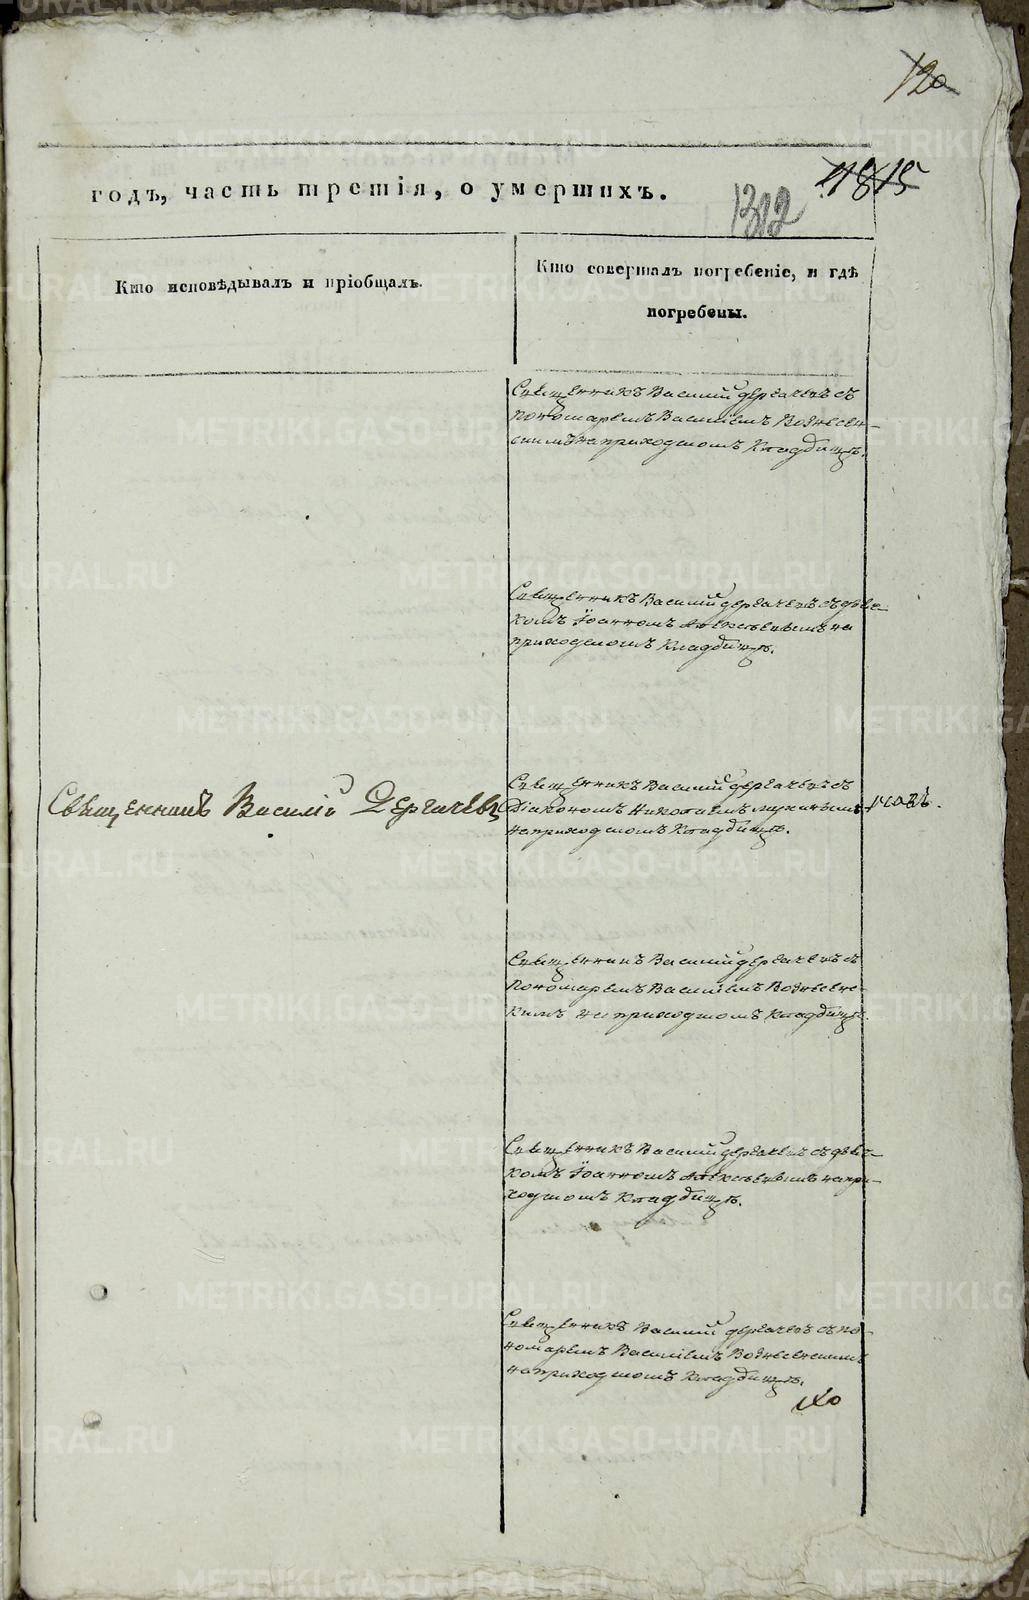 120
1815
1312
годъ, часть третія, о умершихъ.
Кто исповѣдывалъ и пріобщалъ.
Кто совершалъ погребеніе, и гдѣ
погребены.
Священникъ Василій Дергачевъ съ
пономаремъ Василіемъ Вознесен-
скимъ на приходскомъ кладбищѣ.
Священникъ Василій Дергачевъ съ дьяч-
комъ Іоанномъ Алексѣевымъ на
приходскомъ кладбищѣ.
Священникъ Василій Дергачевъ
Священникъ Василій Дергачевъ съ
Діакономъ Николаемъ
на приходскомъ кладбищѣ.
Священникъ Василій Дергачевъ съ
пономаремъ Василіемъ Вознесенс-
кимъ на приходскомъ кладбищѣ.
Священникъ Василій Дергачевъ съ дьяч-
комъ Іоанномъ Алексѣевымъ на при-
ходскомъ кладбищѣ.
Священникъ Василій Дергачевъ съ по-
номаремъ Василіемъ Вознесенскимъ
на приходскомъ кладбищѣ.
METRIKI.GASO-URAL.RU